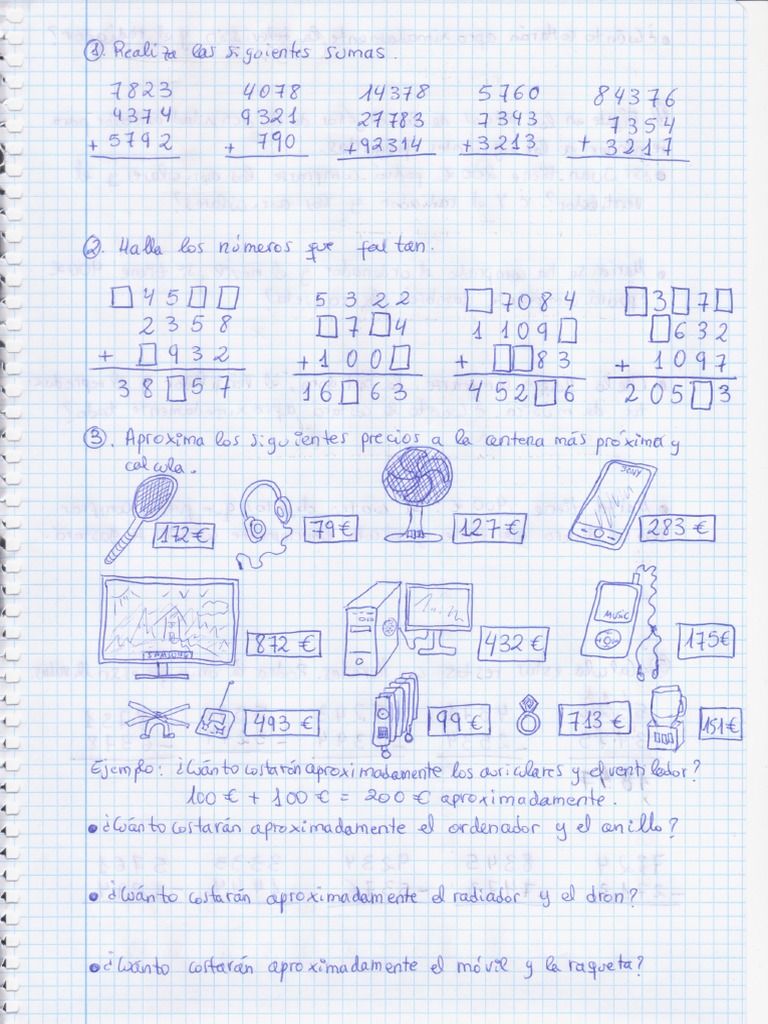 1. Realiza las siguientes sumas.
7823 4078 14378 5760 84376
4374 9321 27783 7343 7354
+ 5792 + 790 +92314 +3213 + 3217
2. Halla los números que faltan.
□45□□ 5322 □7084 □3□7□
2358 □7□4 1109□ □632
+ □932 +100□ + □□83 + 1097
38□57 16□63 452□6 205□3
3. Aproxima los siguientes precios a la centena más próxima y
calcula.
SONY
172€ 79€ 127€ 283€
MUSIC
SAMSUNG
872€ 432€ 175€
493€ 99€ 713€ 151€
Ejemplo: ¿Cuánto costarán aproximadamente los auriculares y el ventilador?
100€ + 100€ = 200€ aproximadamente.
• ¿Cuánto costarán aproximadamente el ordenador y el anillo?
• ¿Cuánto costarán aproximadamente el radiador y el dron?
• ¿Cuánto costarán aproximadamente el móvil y la raqueta?